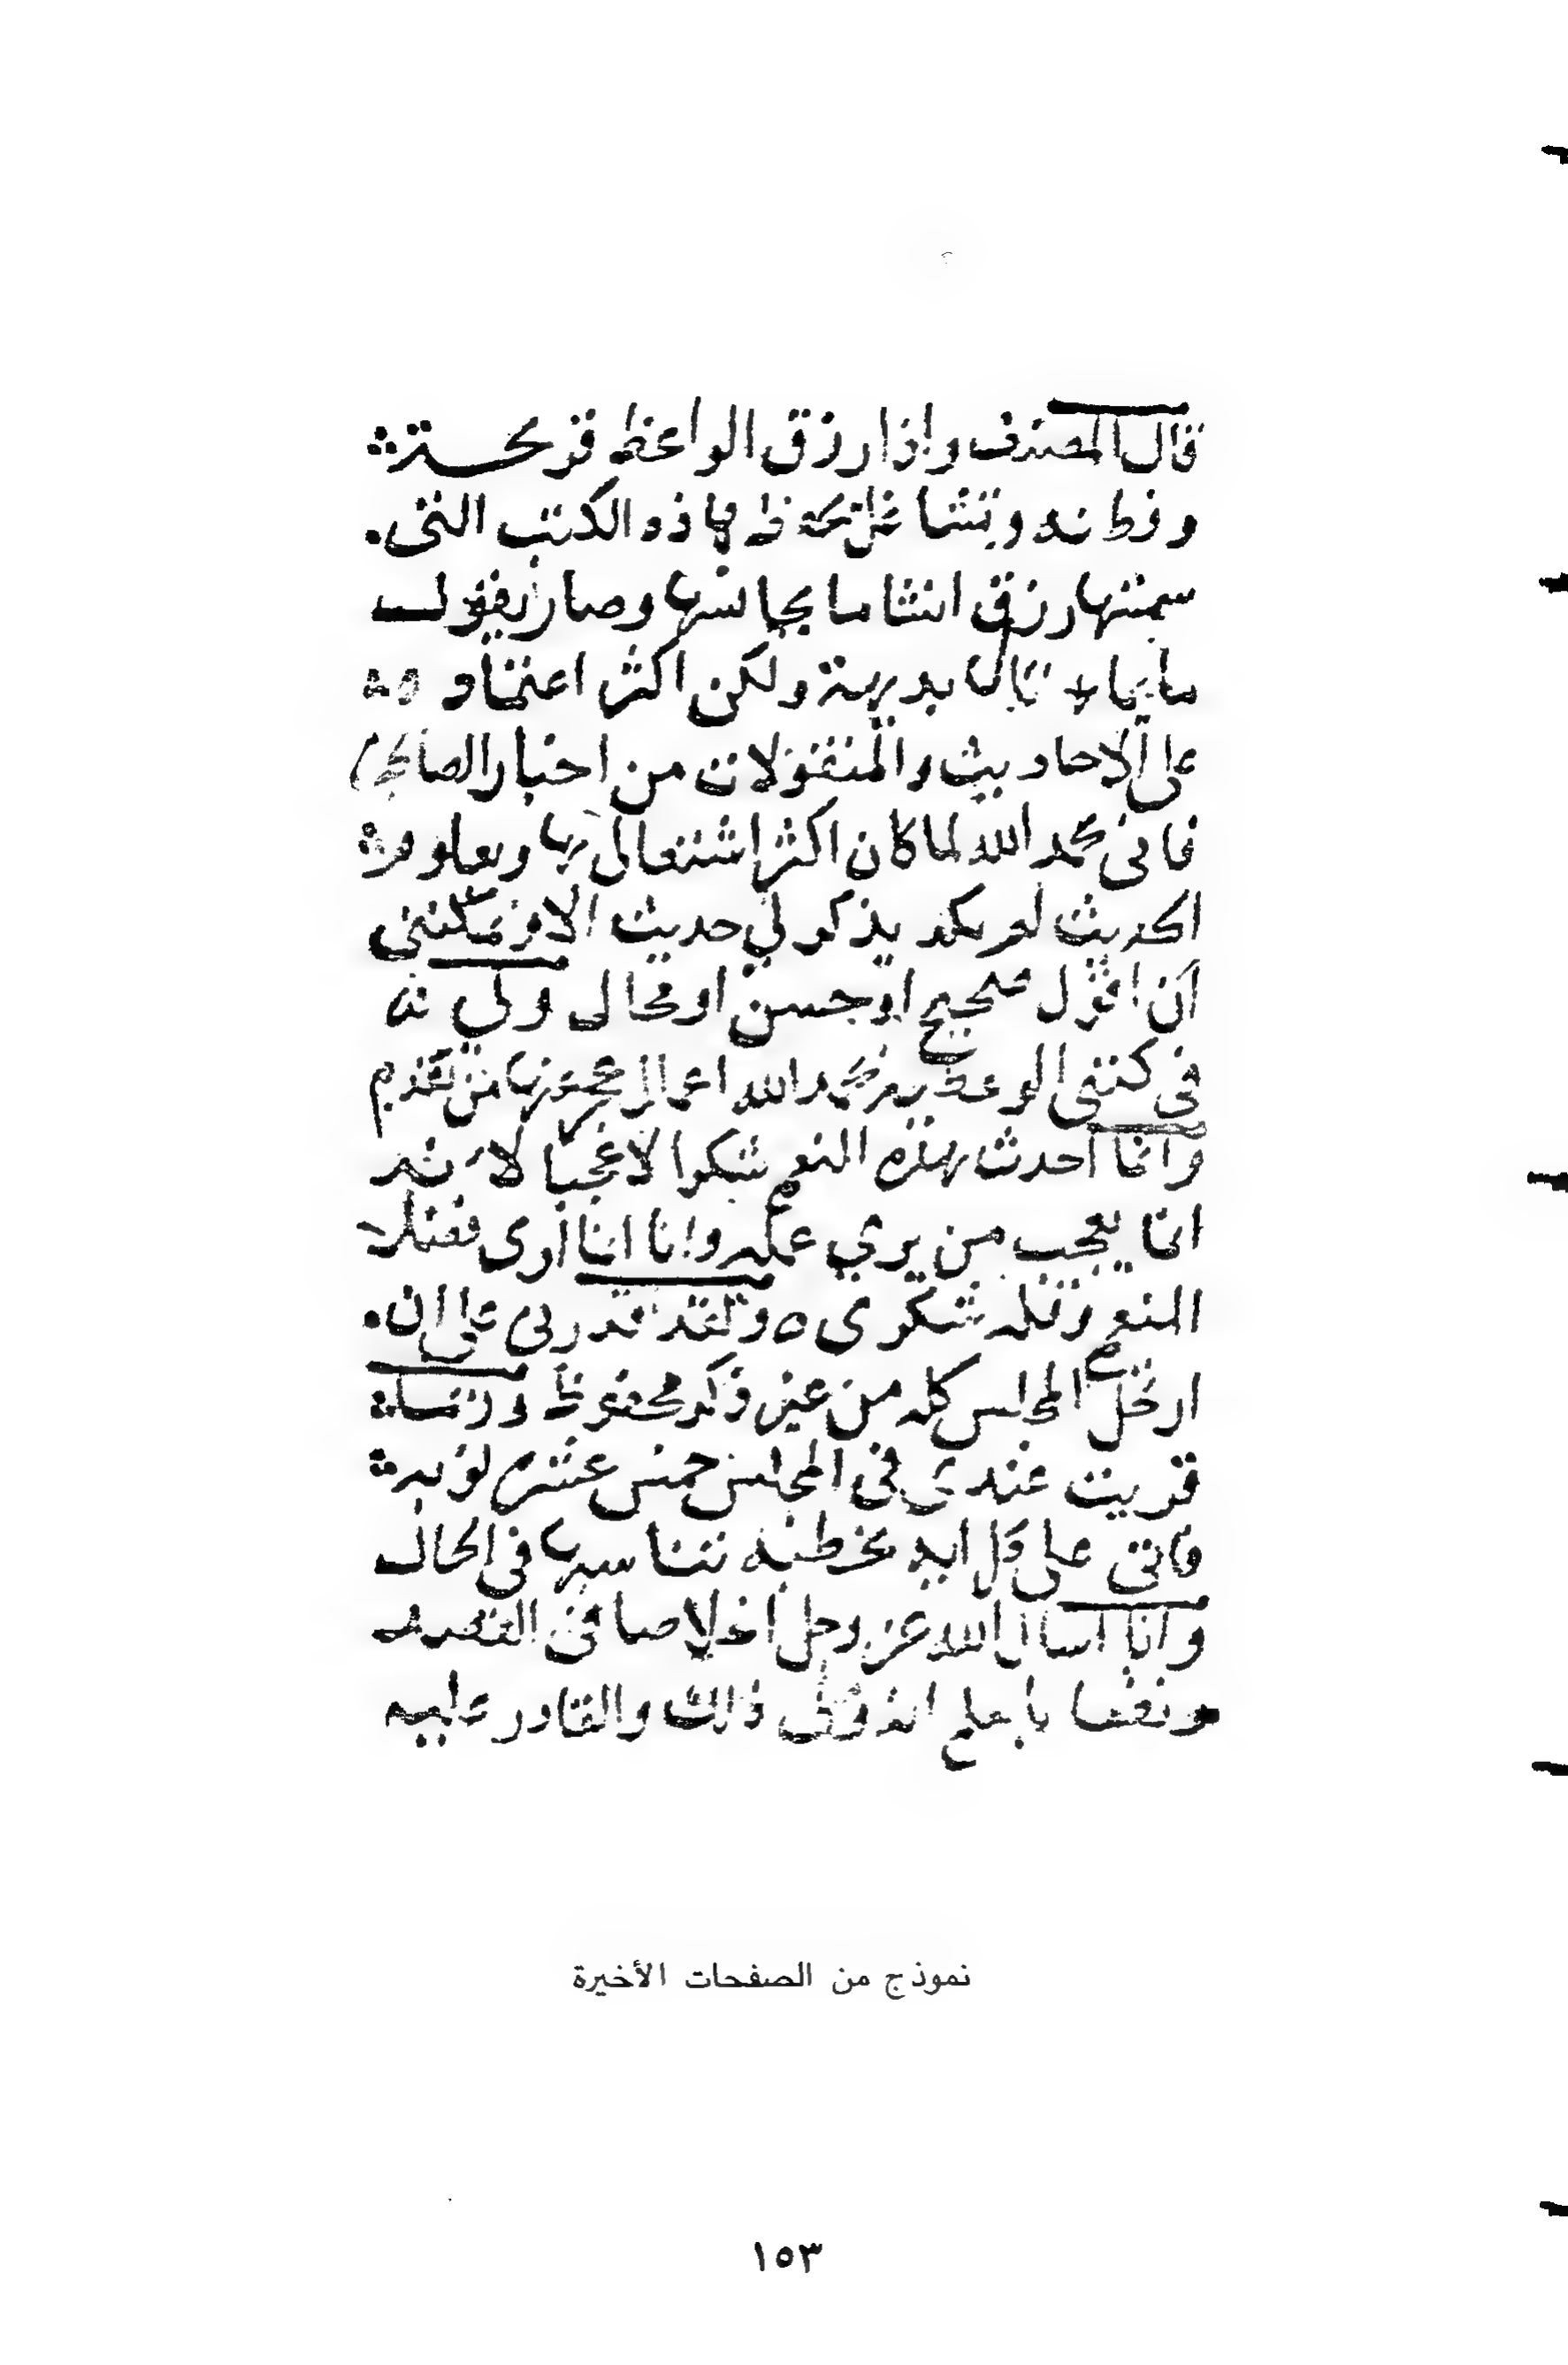 قال المصنف واذا رزق الواعظ قريحة
وفطانه وتشاغل بحفظ هاذه الكتب التى
سميتها رزق انشا ما يجانسها وصار يقول
بديهة ولكن اكثر اعتماده
على الاحاديث والمنقولات من اخبار الصالحين
فانى بحمد الله لما كان اكثر اشتغالى بها وبعلوم
الحديث لم يكد يذكر لي حديث الا ويمكننى
ان اقول صحيح او حسن او محال ولي
فى الوعظ بحمد الله
وانما احدث بهذه النعم شكرا لا عجبا لانه
انما يعجب من يري عمله وانا انما ارى فضل
المنعم وقلة شكرى ه ولقد قدرنى على ان
ارتجل المجلس كله من غير ذكر محفوظ
قريت عندى فى المجلس خمس عشرة
فاتى على كل ايه بخطبة تناسبها فى الحال
وانا اسال الله عز وجل اخلاصا فى القصد
ونفعا بالعلم انه ولى ذلك والقادر عليه
نموذج من الصفحات الأخيرة
١٥٣